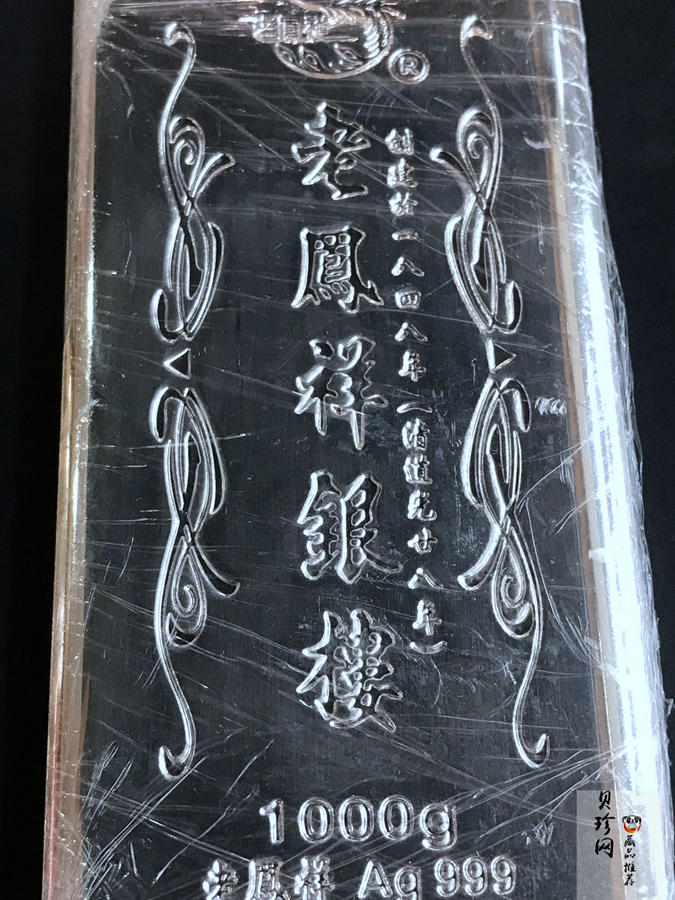 ®
老鳳祥銀樓
創建於一八四八年(清道光廿八年)
1000g
老鳳祥 Ag 999
贝珍网
藏品推荐